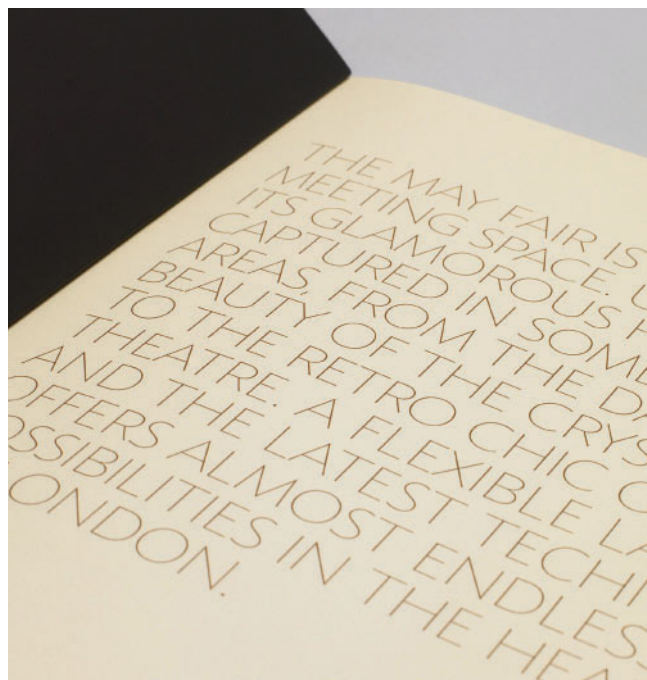 THE MAY FAIR IS
MEETING SPACE.
ITS GLAMOROUS
CAPTURED IN SOME
AREAS, FROM THE
BEAUTY OF THE
TO THE RETRO CHIC
THEATRE. A FLEXIBLE
AND THE LATEST
OFFERS ALMOST ENDLESS
IN THE
LONDON.